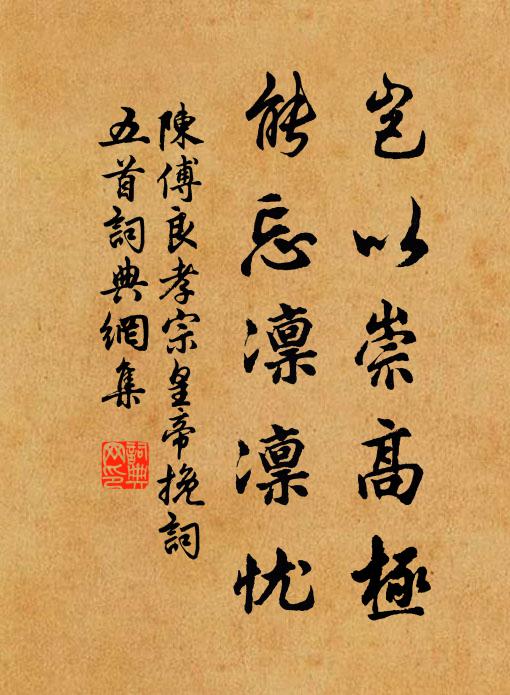 岂以崇高極
能忘凛凛忧
陳傅良孝宗皇帝挽詞
五首詞典網集
詞典網印